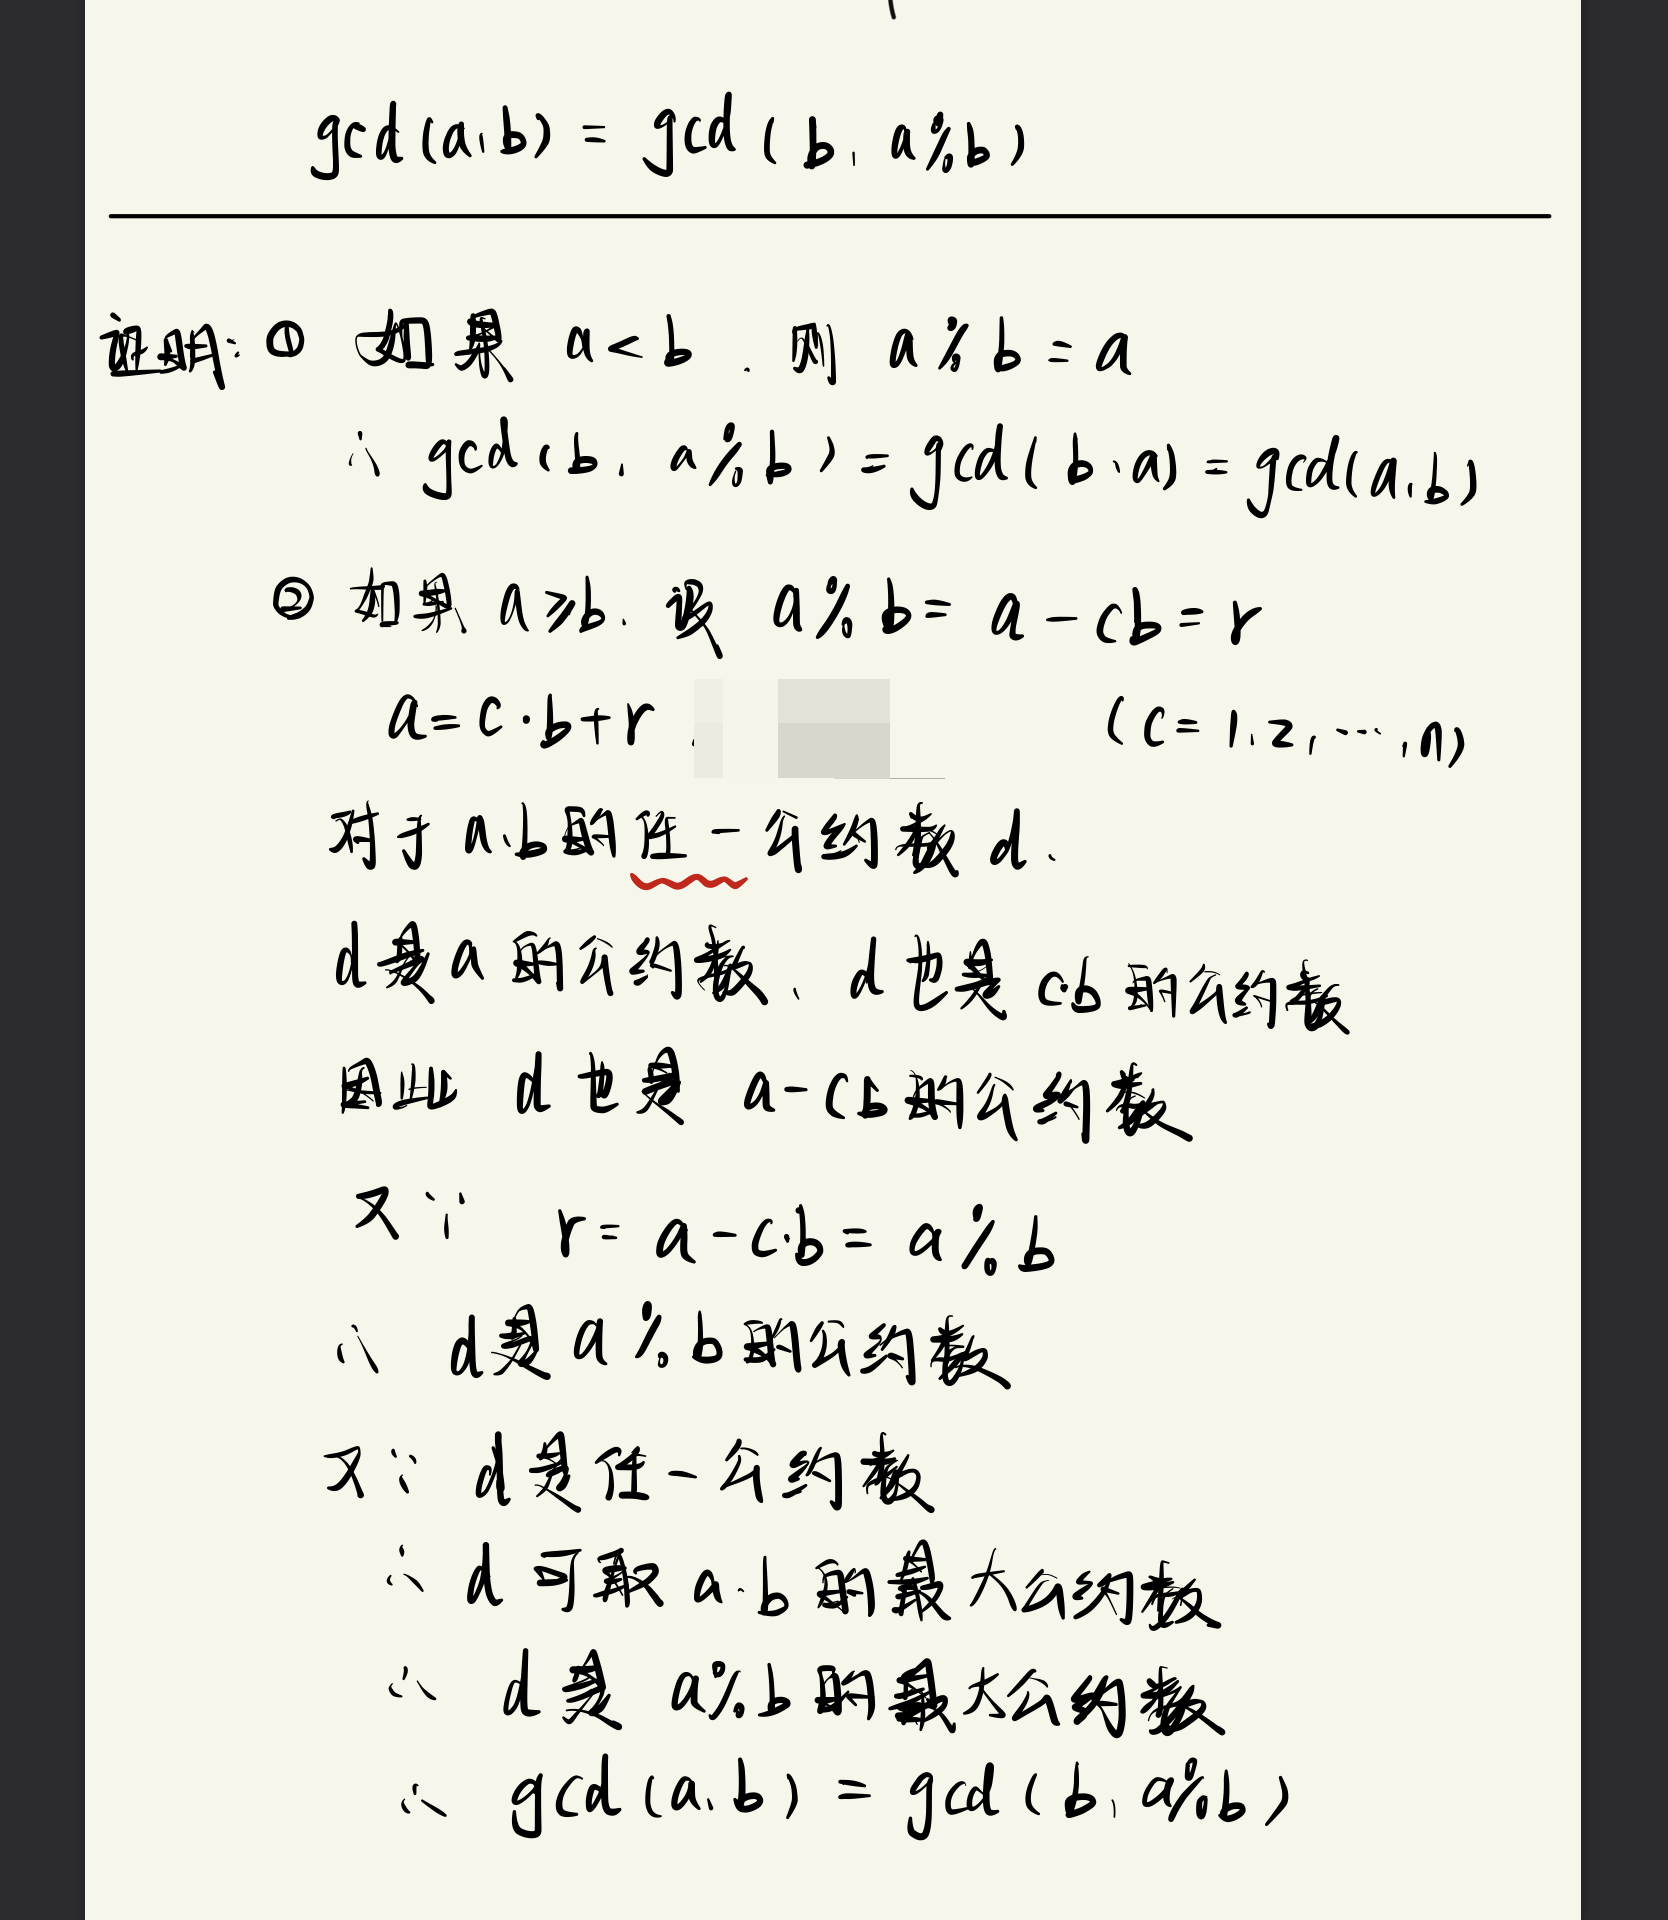 gcd(a,b) = gcd(b, a%b)
证明: ① 如果 a<b , 则 a%b=a
∴ gcd(b, a%b) = gcd(b,a) = gcd(a,b)
② 如果 a≥b, 设 a%b= a-cb=r
a=c·b+r , (c=1,2,…,n)
对于 a、b的任一公约数 d、
d是a的公约数、d也是c·b的公约数
因此 d也是 a-cb的公约数
又∵ r= a-c·b= a%b
∴ d是a%b的公约数
又∵ d是任一公约数
∴ d可取a、b的最大公约数
∴ d是 a%b的最大公约数
∴ gcd(a,b) = gcd(b, a%b)